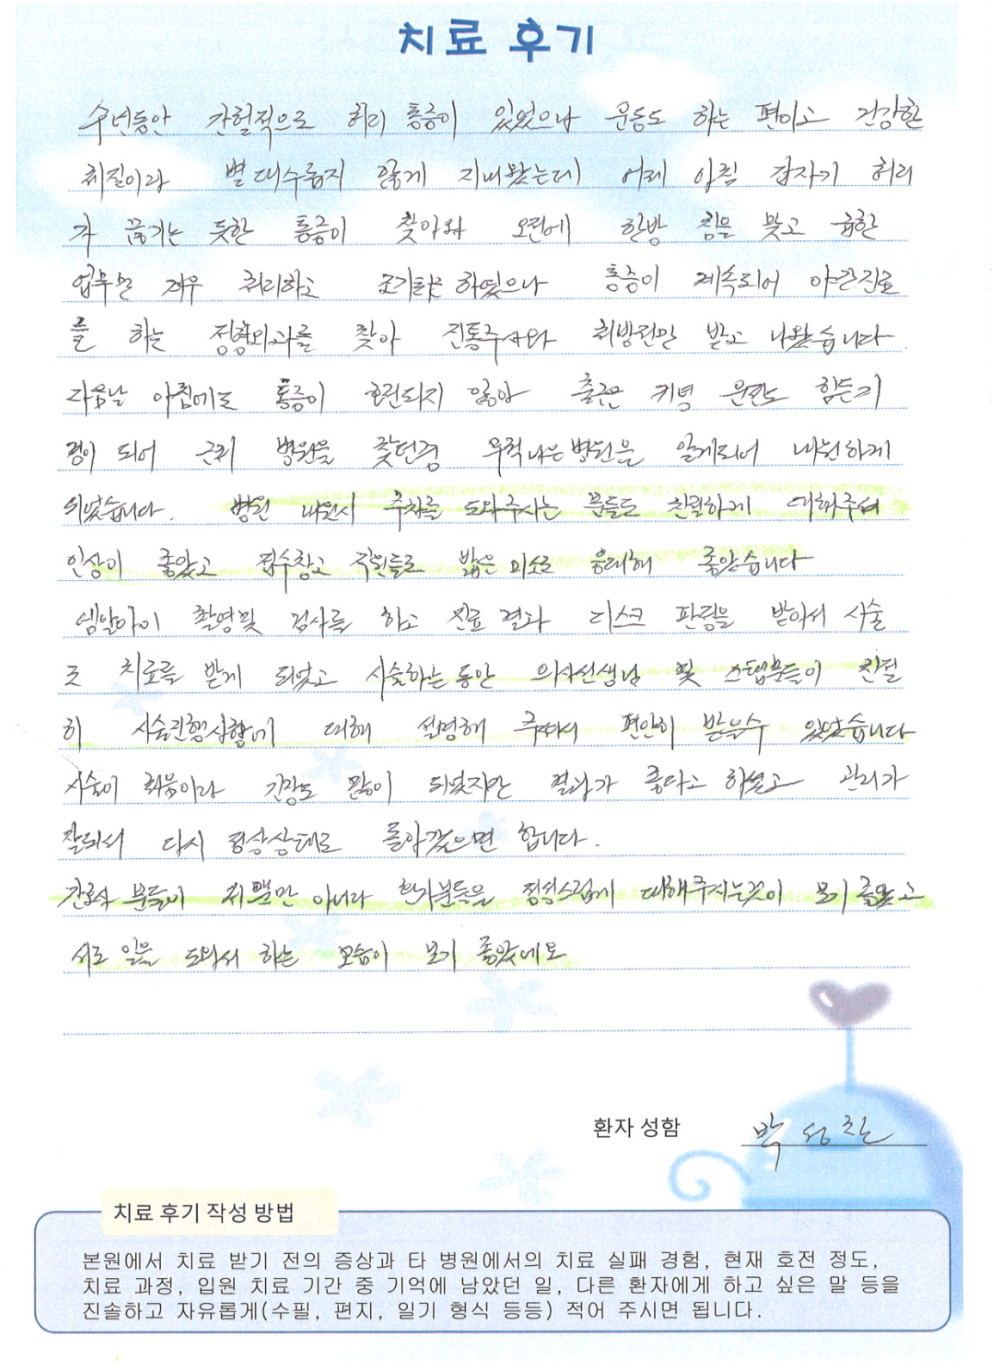 치료 후기
수년동안 간헐적으로 허리 통증이 있었으나 운동도 하는 편이고 건강한
체질이라 별 대수롭지 않게 지내왔는데 어제 아침 갑자기 허리
가 끊기는 듯한 통증이 찾아와 오전에 한방 침을 맞고 급한
업무만 겨우 처리하고 조기퇴근 하였으나 통증이 계속되어 야간진료
를 하는 정형외과를 찾아 진통주사와 처방전만 받고 나왔습니다.
다음날 아침에도 통증이 호전되지 않아 출근은 커녕 운전도 힘든지
경이 되어 근처 병원을 찾던중 우척나은병원을 알게되어 내원하게
되었습니다. 병원 내원시 주차를 도와주시는 분들도 친절하게 대해주셔
인상이 좋았고 접수창고 직원들도 밝은 미소로 응대해 좋았습니다
엠알아이 촬영및 검사를 하고 진료 결과 디스크 판정을 받아서 시술
로 치료를 받게 되었고 시술하는 동안 의사선생님 및 스텝분들이 친절
히 시술진행상황에 대해 설명해 주셔서 편안히 받을수 있었습니다
시술이 처음이라 긴장도 많이 되었지만 결과가 좋다고 하셨고 관리가
잘되서 다시 정상상태로 돌아갔으면 합니다.
간호사 분들이 저뿐만 아니라 환자분들을 정성스럽게 대해주시는것이 보기 좋았고
서로 일을 도와서 하는 모습이 보기 좋았네요
환자 성함 박
치료 후기 작성 방법
본원에서 치료 받기 전의 증상과 타 병원에서의 치료 실패 경험, 현재 호전 정도,
치료 과정, 입원 치료 기간 중 기억에 남았던 일, 다른 환자에게 하고 싶은 말 등을
진솔하고 자유롭게(수필, 편지, 일기 형식 등등) 적어 주시면 됩니다.